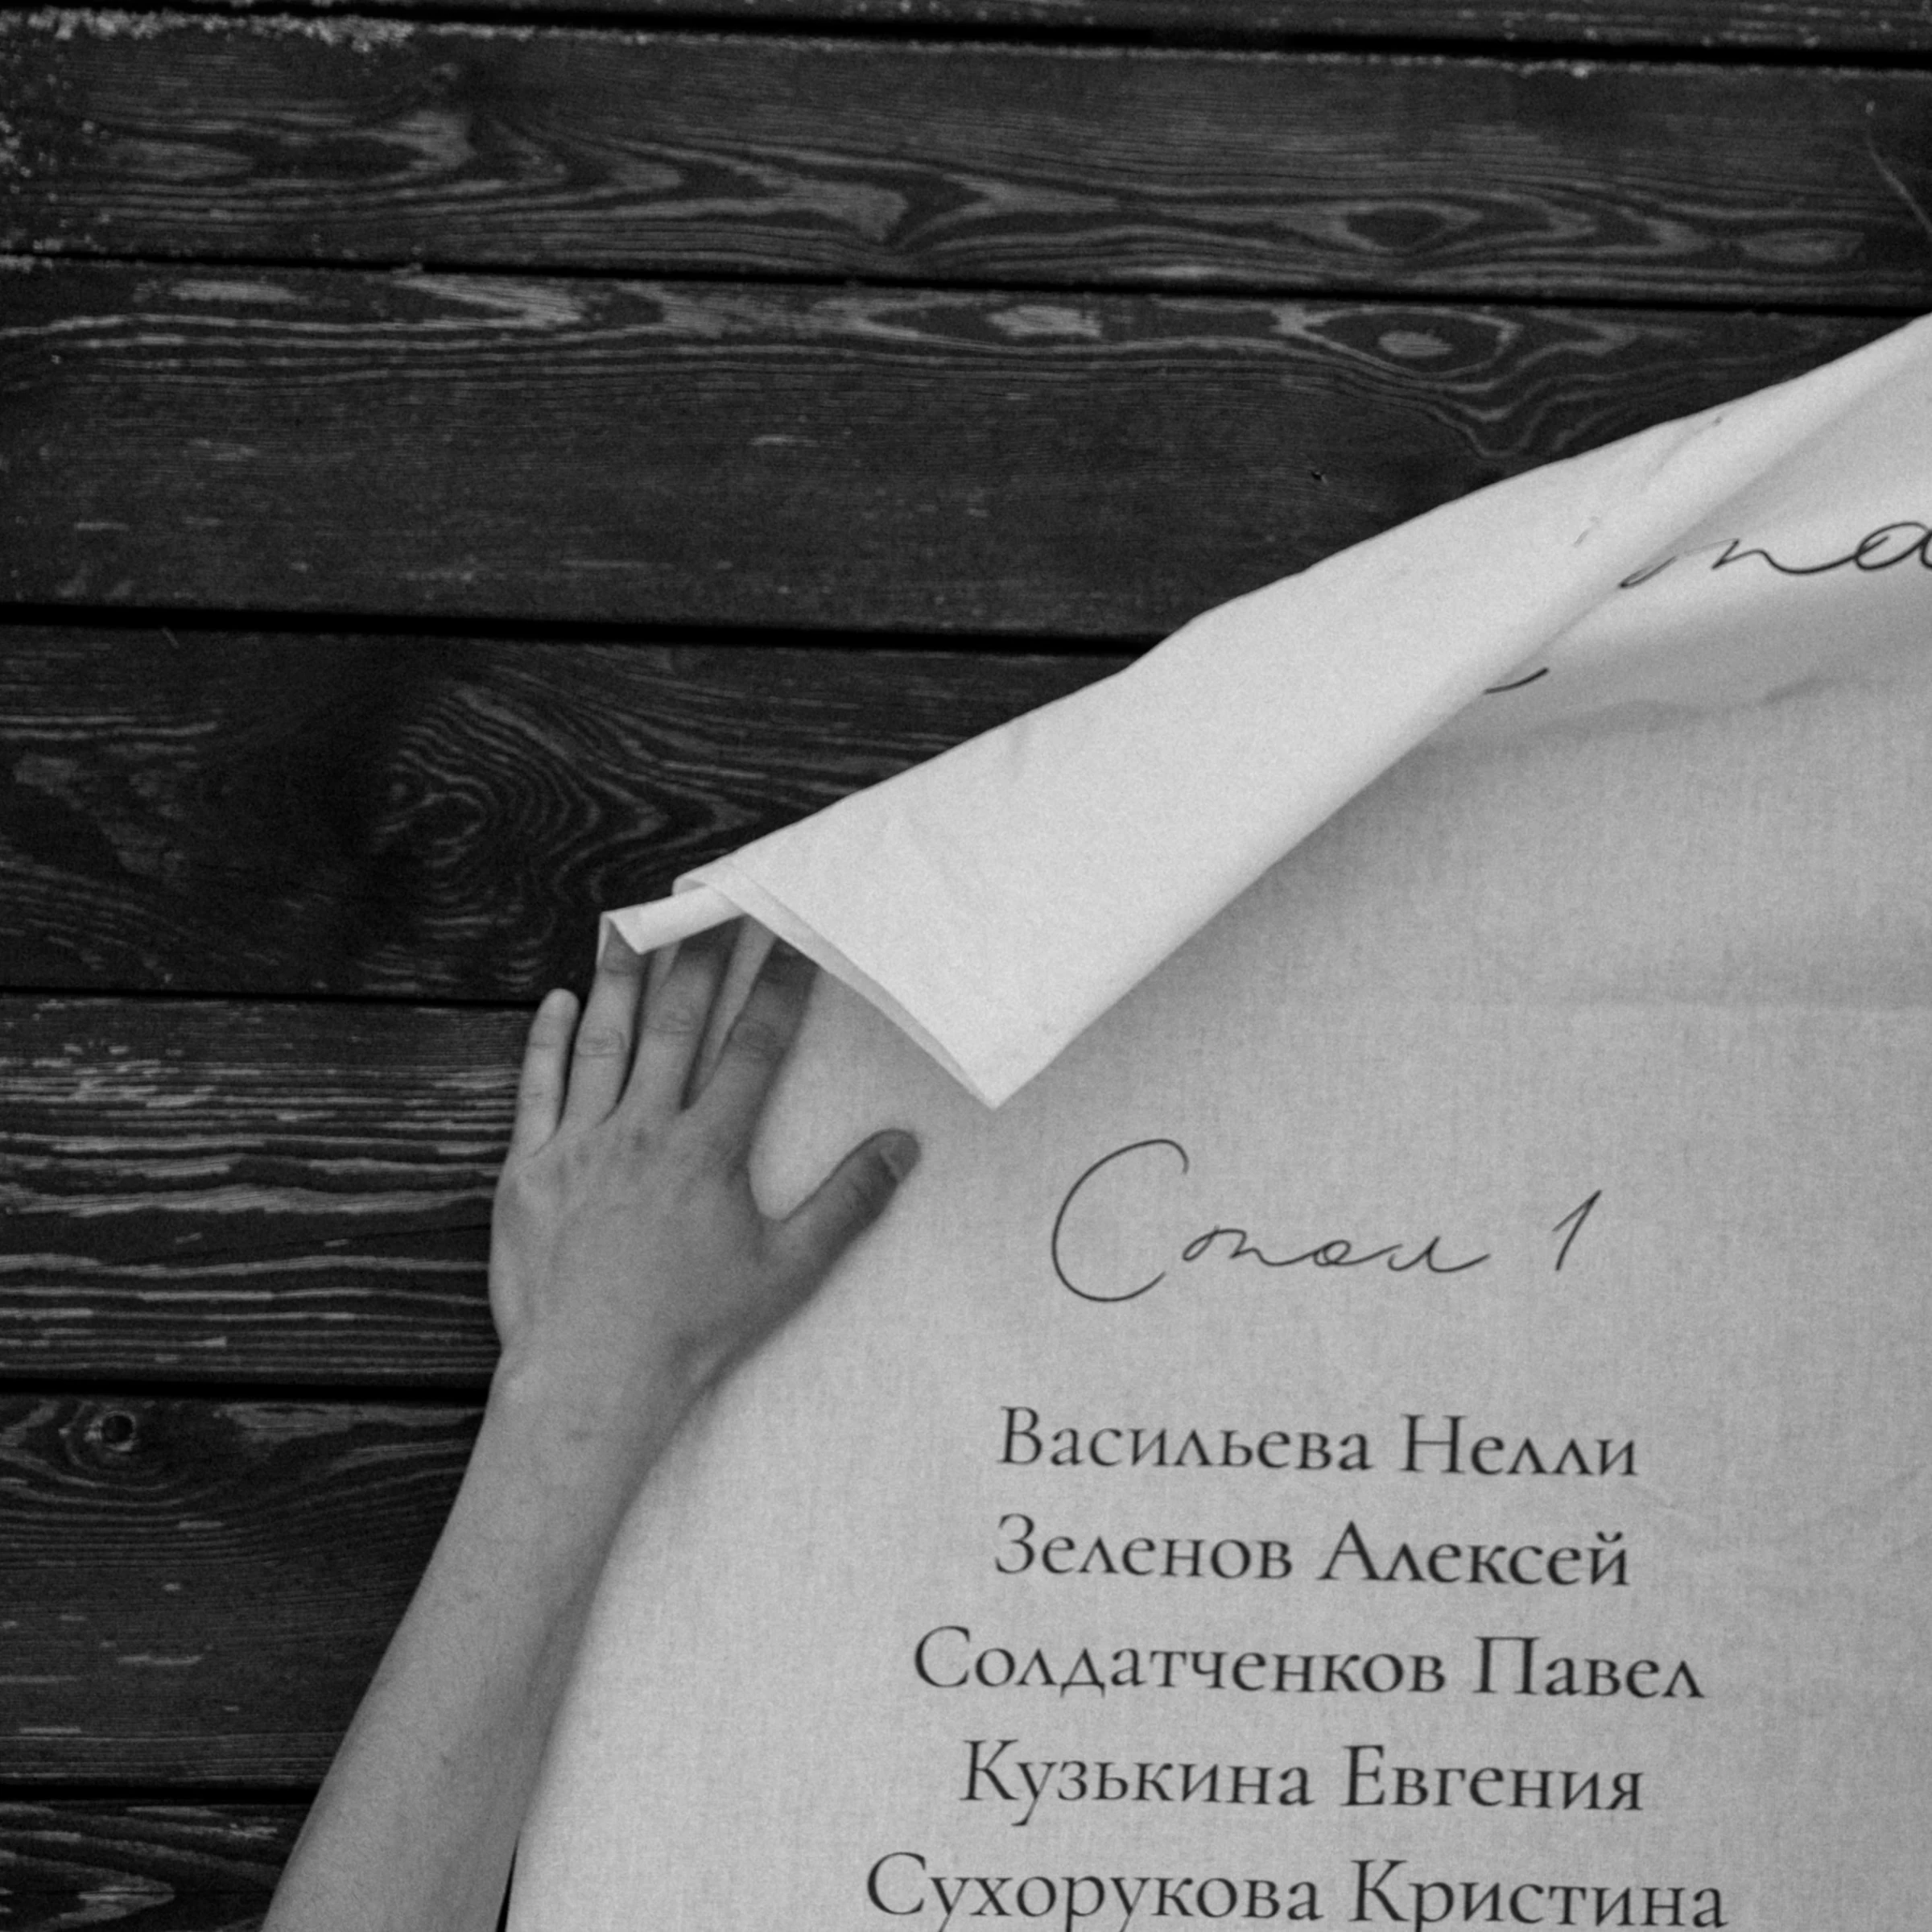 Стол 1
Васильева Нелли
Зеленов Алексей
Солдатченков Павел
Кузькина Евгения
Сухорукова Кристина